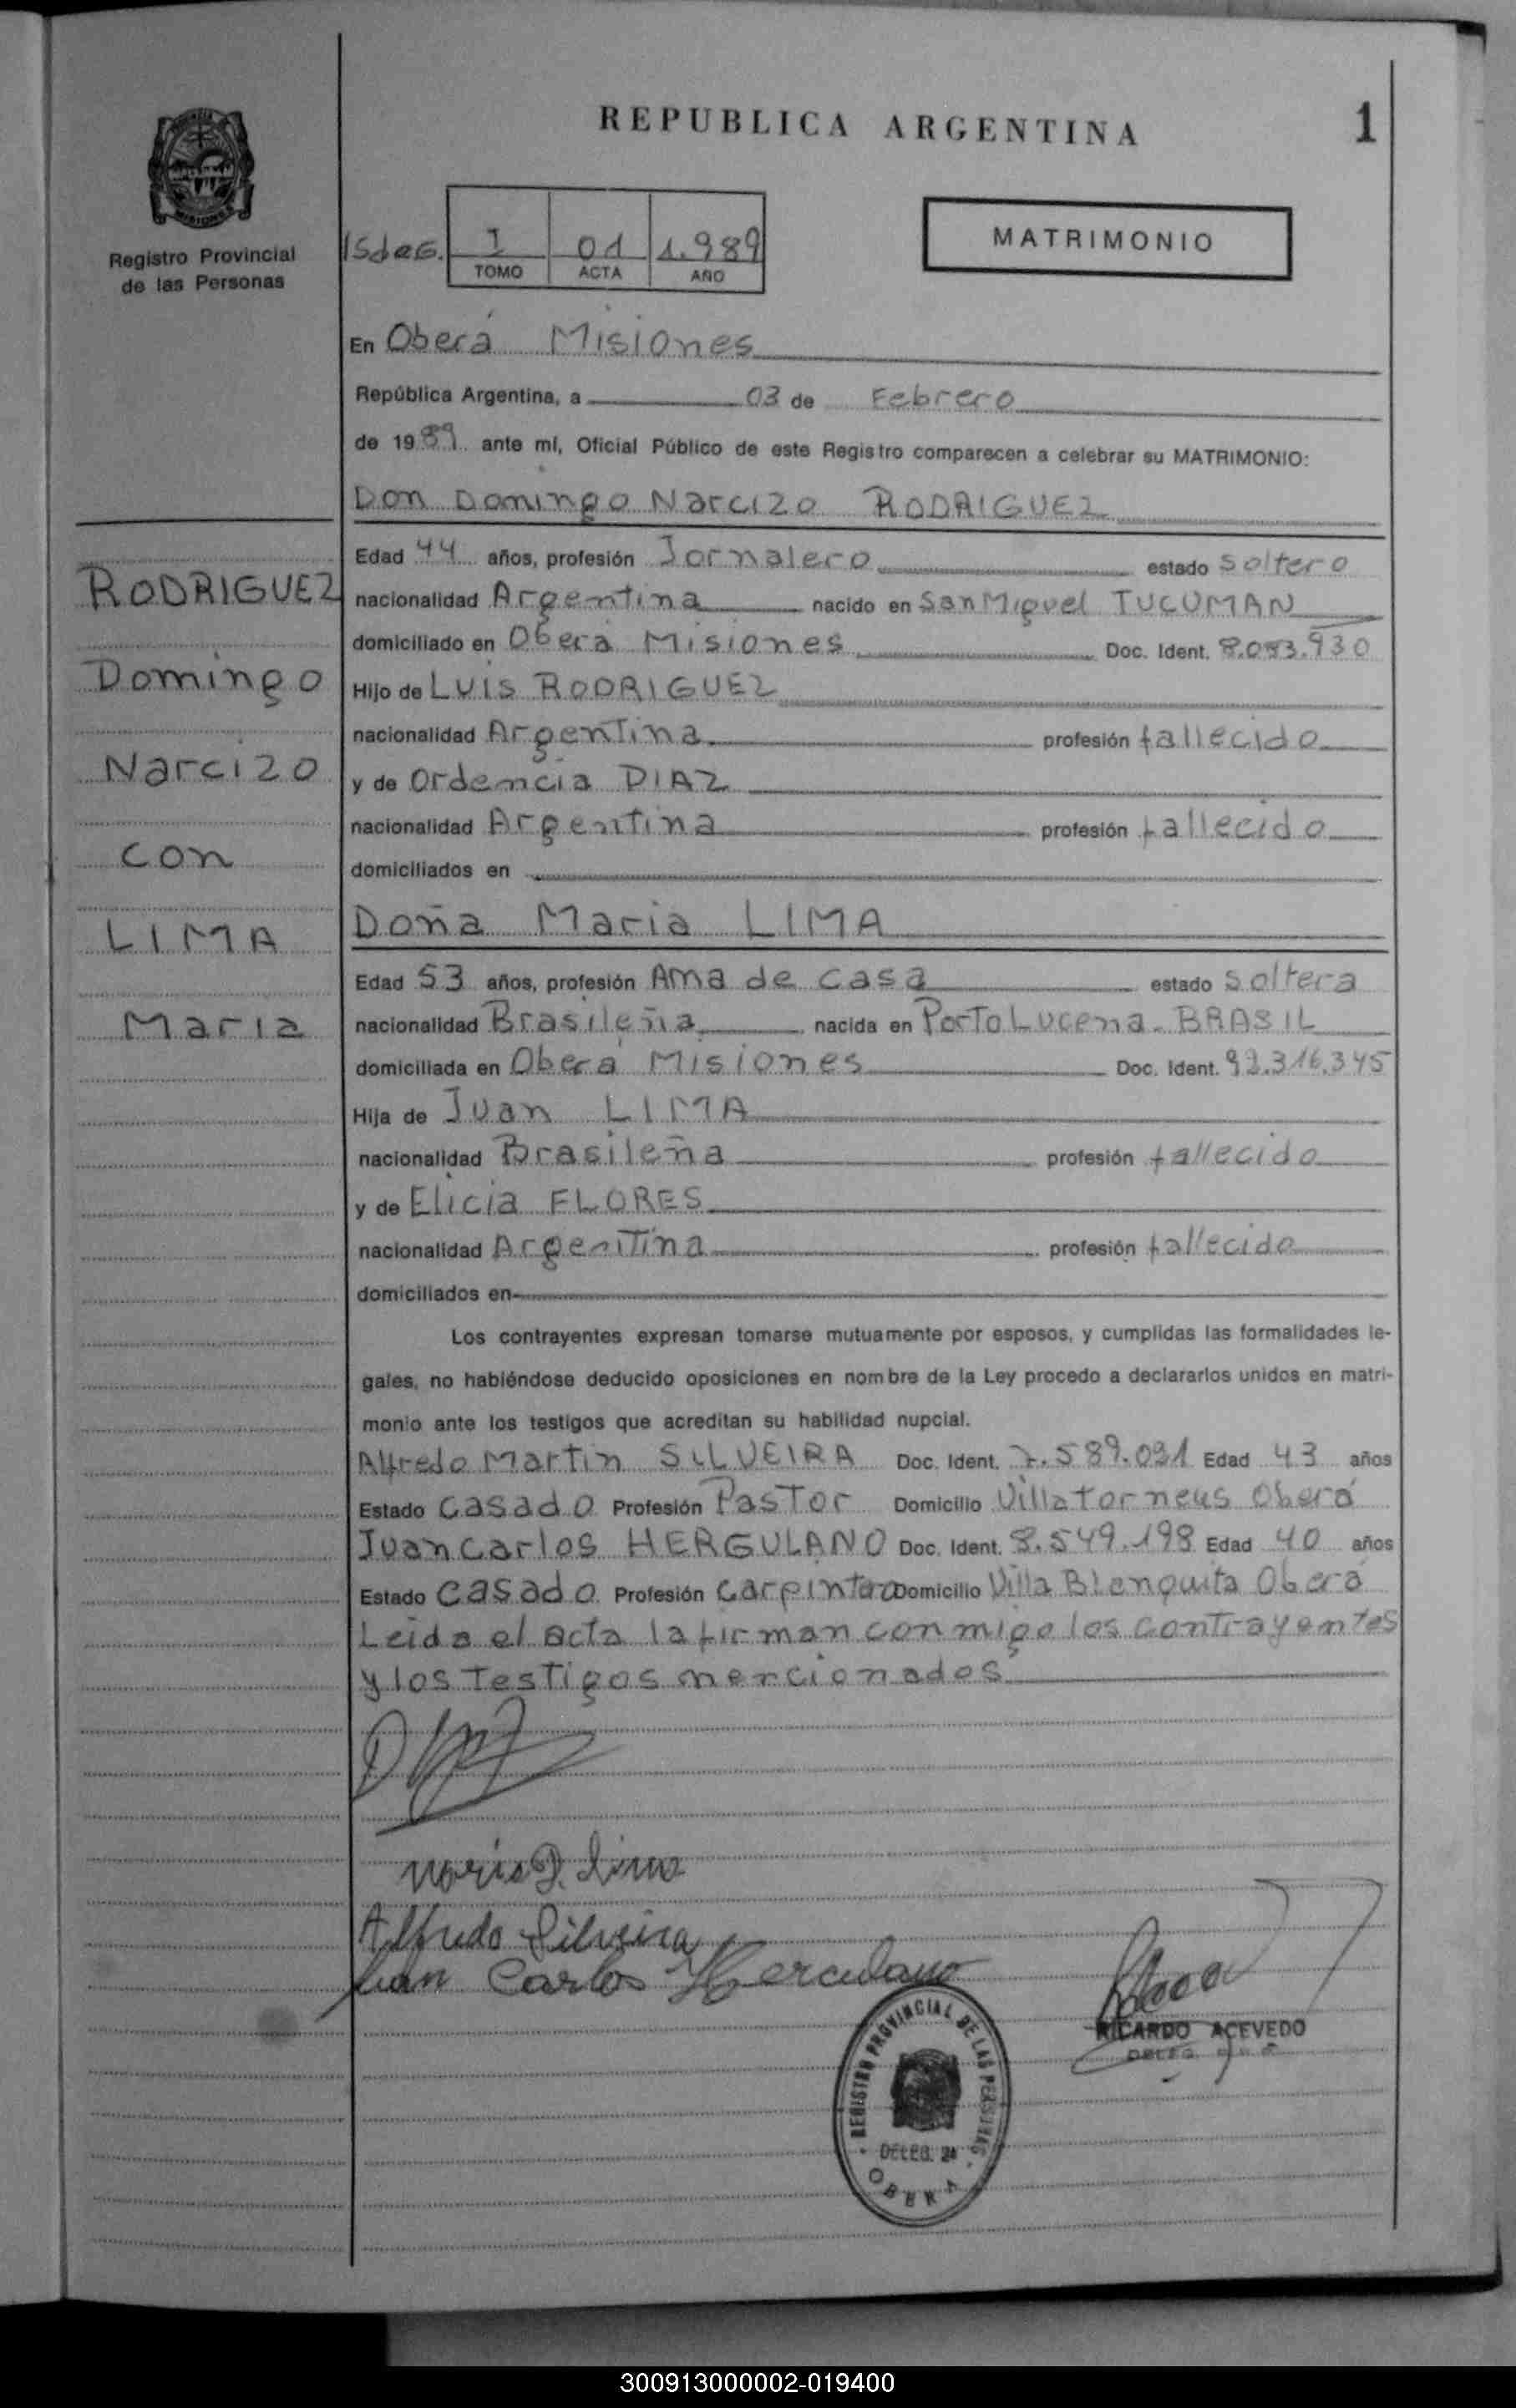 REPUBLICA ARGENTINA
1
Registro Provincial
de las Personas
I 01 1.989
TOMO ACTA AÑO
MATRIMONIO
En Oberá Misiones
República Argentina, a 03 de Febrero
de 1989 ante mí, Oficial Público de este Registro comparecen a celebrar su MATRIMONIO:
Don Domingo Narcizo RODRIGUEZ
Edad 44 años, profesión Jornalero estado Soltero
nacionalidad Argentina nacido en San Miguel TUCUMAN
domiciliado en Oberá Misiones Doc. Ident.
Hijo de LUIS RODRIGUEZ
nacionalidad Argentina profesión fallecido
y de Ordencia DIAZ
nacionalidad Argentina profesión fallecido
domiciliados en
RODRIGUEZ
Domingo
Narcizo
con
LIMA
Maria
Doña Maria LIMA
Edad 53 años, profesión Ama de casa estado Soltera
nacionalidad Brasileña nacida en Porto Lucena. BRASIL
domiciliada en Oberá Misiones Doc. Ident. 92.316.345
Hija de Juan LIMA
nacionalidad Brasileña profesión fallecido
y de Elicia FLORES
nacionalidad Argentina profesión fallecido
domiciliados en
Los contrayentes expresan tomarse mutuamente por esposos, y cumplidas las formalidades le-
gales, no habiéndose deducido oposiciones en nombre de la Ley procedo a declararlos unidos en matri-
monio ante los testigos que acreditan su habilidad nupcial.
Alfredo Martin SILVEIRA Doc. Ident. 7.589.031 Edad 43 años
Estado Casado Profesión Pastor Domicilio Villa Torneus Oberá
Juan Carlos HERGULANO Doc. Ident. 8.549.198 Edad 40 años
Estado Casado Profesión Carpintero Domicilio Villa Blanquita Oberá
Leida el acta la firman conmigo los contrayentes
y los testigos mercionados
Maria D. Lima
Alfredo Silveira
Juan Carlos Herculano
RICARDO ACEVEDO
REGISTRO PROVINCIAL DE LAS PERSONAS
DELEG. 2ª
OBERA
300913000002-019400